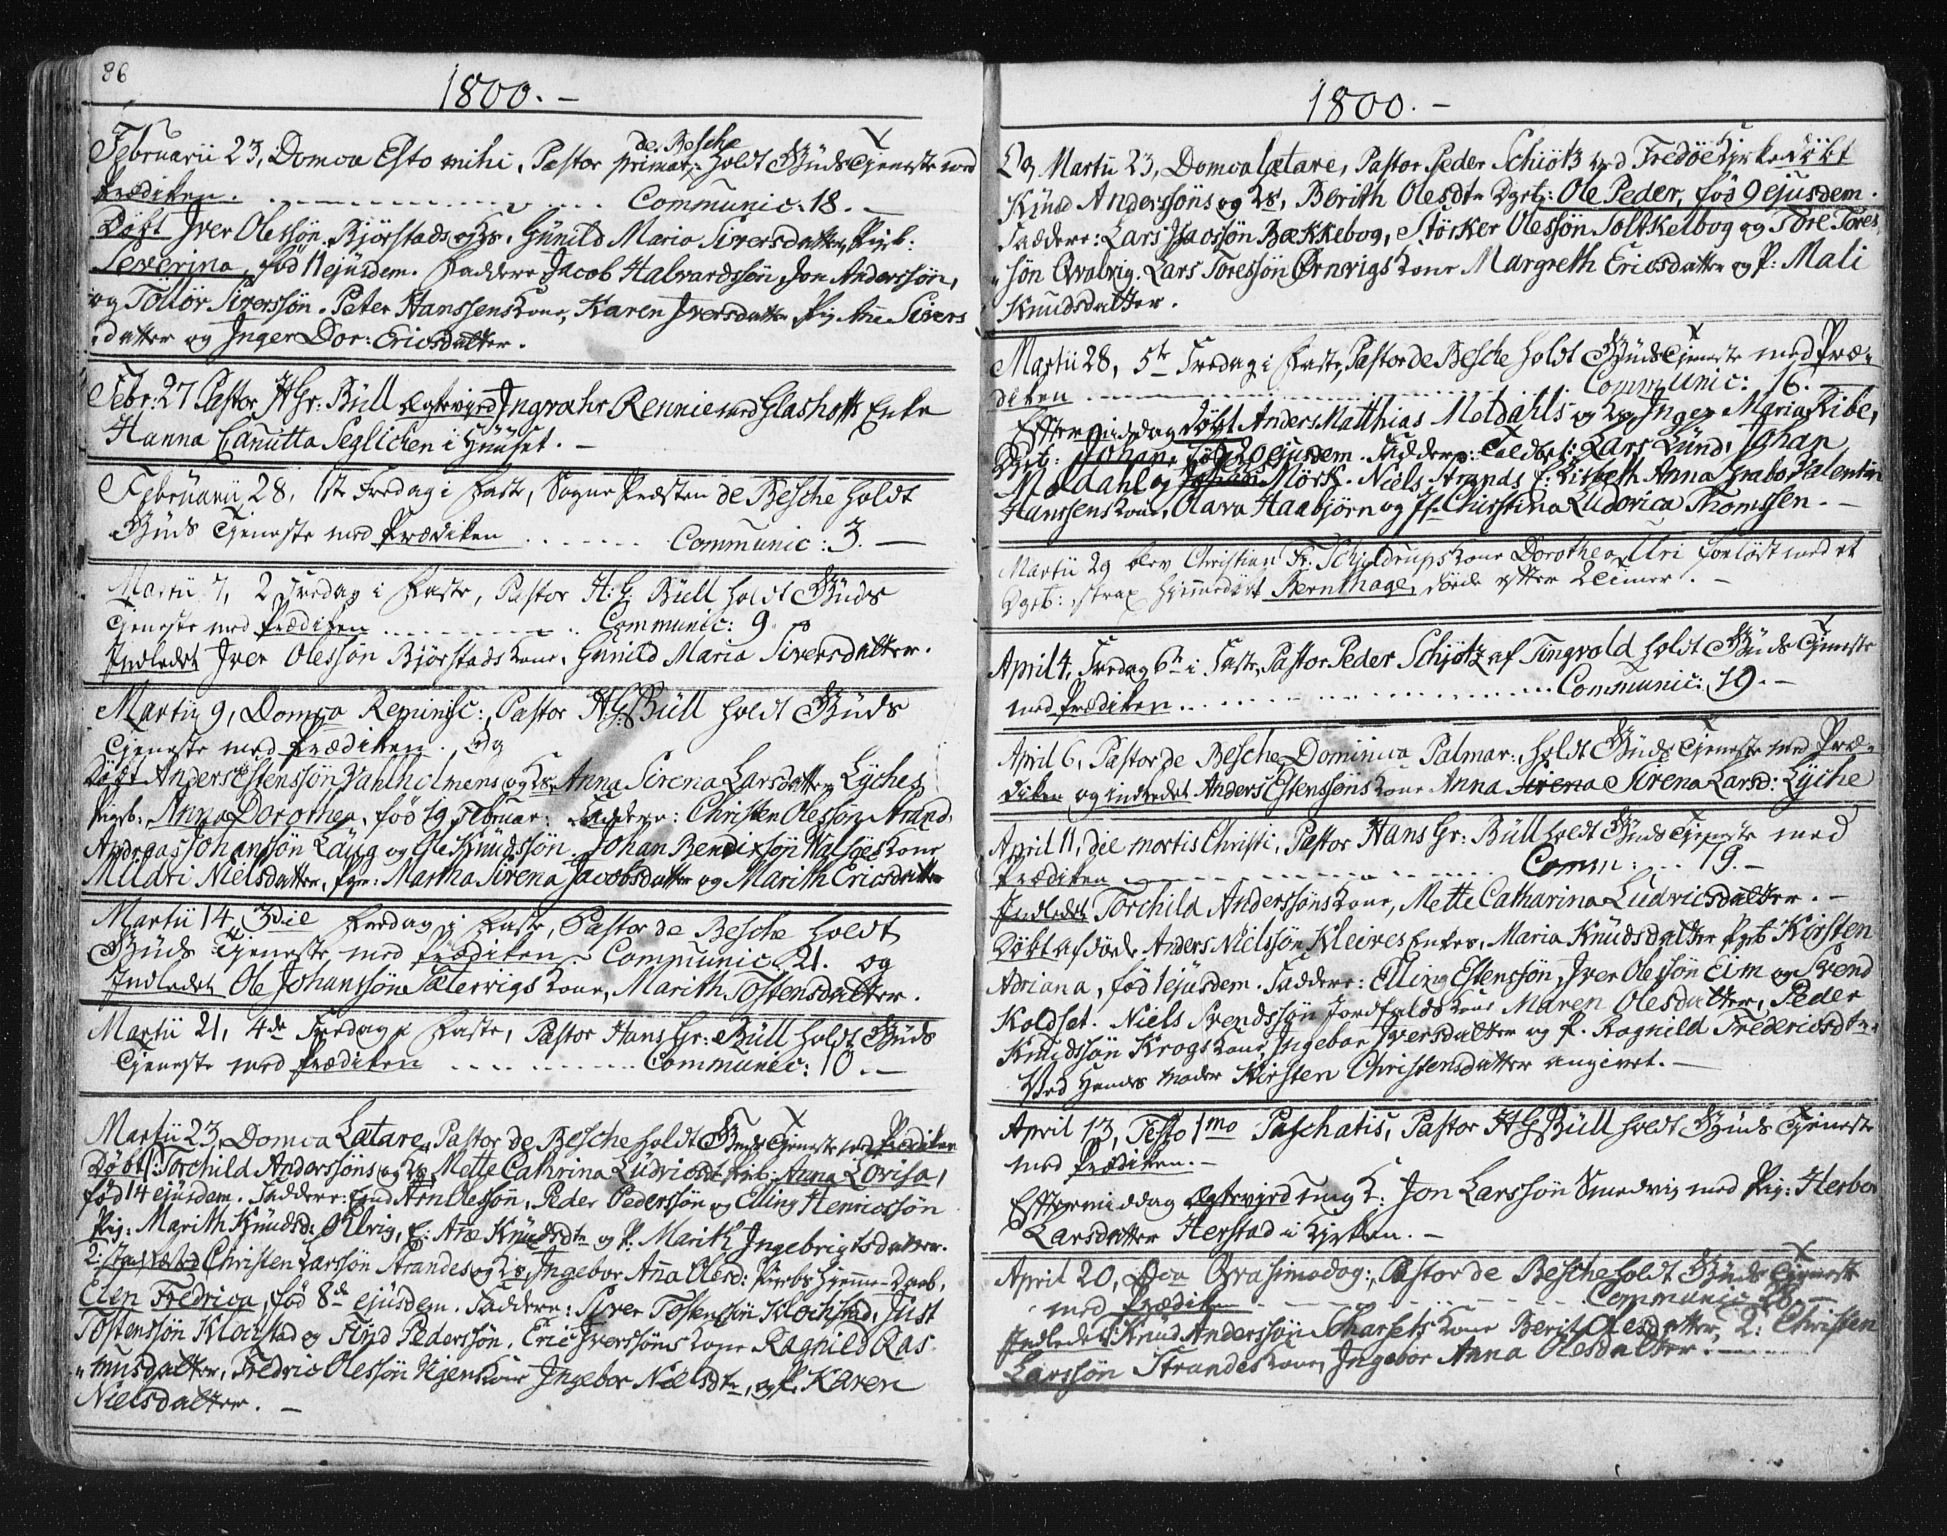 86
1800. –
Februarii 23, Domca Esto mihi, Pastor primar: de Besche holdt Guds Tjeneste med
Prædiken. Communic: 18. –
Døbt Iver Olessøn Bjørstads og H. Gunild Maria Siversdatters Pigeb:
Severina, fød 11 ejusdem. Faddere Jacob Halvardssøn, Jon Anderssøn,
og Tollør Siverssøn. Peter Hanssens Kone, Karen Iversdatter, Pig. Ane Sivers
datter og Inger Dor: Ericsdatter.
Febr: 27 Pastor H Gr: Büll Ægteviede Ingvahr Rennie med Glashofts Enke
Hanna Canutta Seglichen i Huuset. –
Februarii 28, 1ste Fredag i Faste, Sogne Præsten de Besche holdt
Guds Tjeneste med Prædiken Communic: 3. –
Martii 7, 2 Fredag i Faste, Pastor H: G. Büll holdt Guds
Tjeneste med Prædiken Communic: 9.
Indledet Iver Olessøn Bjørstads Kone, Gunild Maria Siversdatter.
Martii 9, Domca Reminisc: Pastor H G: Büll holdt Guds
Tjeneste med Prædiken. og
Døbt Anders Estenssøn Vahlholmens og H. Anna Sirena Larsdatter Lyches
Pigeb: Anna Dorothea, fød 19 Februar: Faddere: Christen Olessøn Strand,
Andreas Johanssøn Laug og Ole Knudssøn. Johan Bendixsøn Walsøes Kone
Mildri Nielsdatter, Pger: Martha Sirena Jacobsdatter og Marith Ericsdatter
Martii 14, 3die Fredag i Faste, Pastor de Besche holdt
Guds Tjeneste med Prædiken. Communic. 21. og
Indledet Ole Johanssøn Sætervigs Kone, Marith Tostensdatter.
Martii 21, 4de Fredag i Faste, Pastor Hans Gr: Büll holdt Guds
Tjeneste med Prædiken Communic: 10. –
Martii 23, Domca Lætare, Pastor de Besche holdt Guds Tjeneste med Prædiken
Døbt 1: Torchild Anderssøns og H. Mette Cathrina Ludvicsdt. Pigeb: Anna Lovisa,
fød 14 ejusdem. Faddere: Arn Olessøn, Peder Pederssøn og Elling Henricssøn
Pig: Marith Knudsd: Ølvrig, E: Ane Knudsdtr og P: Marith Ingebrigtsdatter.
2: Christen Larssøn Strandes og H. Ingebor Anna Olesd: Pigebs Hjemme-Daab,
Elen Fredrica, fød 8de ejusdem. Faddere: Siver Tostenssøn Klochstad, Just
Tostenssøn Klochstad og Find Pederssøn. Eric Iverssøns Kone Ragnild Ras
musdatter, Fredric Olessøn Vegens Kone Ingebor Nielsdtr, og P. Karen
Nielsdatter. –
1800. –
Og Martii 23, Domca Lætare, Pastor Peder Schiötz ved Fredøe Kirke døbt
Knud Anderssøns og H. Berith Olesdtr Dgeb: Ole Peder, fød 9 ejusdem.
Faddere: Lars Jacossøn Bækkebog, Størker Olessøn Tolkkelbog og Tore Tores
søn Qvalvig. Lars Toressøn Ørnvigs Kone Margreth Ericsdatter og P: Mali
Knudsdatter.
Martii 28, 5te Fredag i Faste, Pastor de Besche holdt Guds Tjeneste med Præ-
diken Communic: 16. –
Eftermiddag døbt Anders Matthias Moldahls og H. Inger Maria Ribe,
Dgeb: Johan, fød 20 ejusdem. Faddere: Toldbet: Lars Lund, Johan
Moldahl og Mörk. Niels Strands E: Lisbeth Anna Grabo Valentin
Hanssens Kone, Olava Haabjörn og Jf: Christina Ludovica Thomssen. –
Martii 29 blev Christian Fr: Schjeldrups Kone Dorothea Uri forløst med et
Dgeb: strax hjemmedøbt Bernt Hage, døde efter 2 Timer. –
April 4, Fredag 6te i Faste, Pastor Peder Schjötz af Tingvold holdt Guds Tjeneste
med Prædiken Communic: 19. –
April 6, Pastor de Besche Dominica Palmar:, holdt Guds Tjeneste med Præ-
diken og indledet Anders Estenssøns Kone Anna Sirena Larsd: Lyche
April 11, die mortis Christi, Pastor Hans Gr: Büll holdt Guds Tjeneste med
Prædiken Comm: 19. –
Indledet Torchild Anderssøns Kone, Mette Catharina Ludvicsdatter. –
Døbt afdøde Anders Nielssøn Kleives Enkes, Maria Knudsdatter Pgeb Kirsten
Adriana, fød 1 ejusdem. Faddere: Elling Estenssøn, Iver Olessøn Eim og Svend
Koldset. Niels Svendssøn Jordfalds Kone Maren Olesdatter, Peder
Knudssøn Krogs Kone, Ingebor Iversdatter og P. Ragnild Fredericsdtr.
Ved hendes Moder Kirsten Christensdatter angivet. –
April 13, Festo 1mo Paschatis, Pastor H G Büll holdt Guds Tjeneste
med Prædiken. –
Eftermiddag Ægteviede Ung K: Jon Larssøn Smedvig med Pig: Herbor
Larsdatter Herstad i Kirken. –
April 20, Dca Qvasimodog: Pastor de Besche holdt Guds Tjeneste
med Prædiken Communic: 28. –
Indledet: Knud Anderssøn Kone Berit Olesdatter, 2: Christen
Larssøn Strandes Kone, Ingebor Anna Olesdatter.